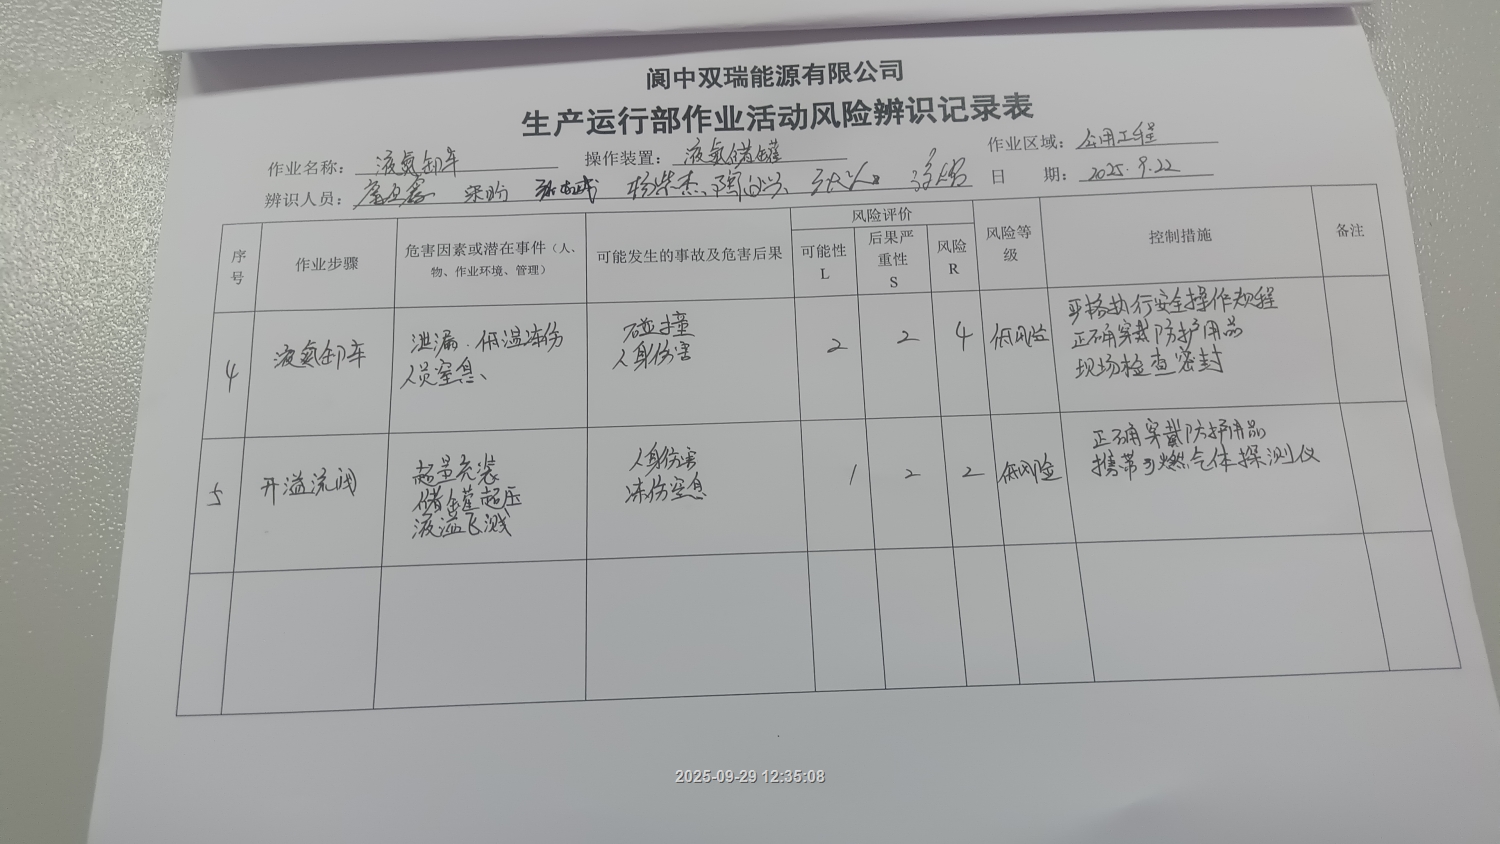 阆中双瑞能源有限公司
生产运行部作业活动风险辨识记录表
作业名称： 液氮卸车 操作装置： 液氮储罐 作业区域： 公用工程
辨识人员： 梁盼 杨柴杰、 日 期： 2025.9.22
序号 作业步骤 危害因素或潜在事件（人、物、作业环境、管理） 可能发生的事故及危害后果 风险评价 风险等级 控制措施 备注
可能性 L 后果严重性 S 风险 R
4 液氮卸车 泄漏.低温冻伤 碰撞 2 2 4 低风险 严格执行安全操作规程
人员窒息、 人身伤害 正确穿戴防护用品
现场检查密封
5 开溢流阀 超量充装 人身伤害 1 2 2 低风险 正确穿戴防护用品
储罐超压 冻伤窒息 携带可燃气体探测仪
液溢飞溅
2025-09-29 12:35:08